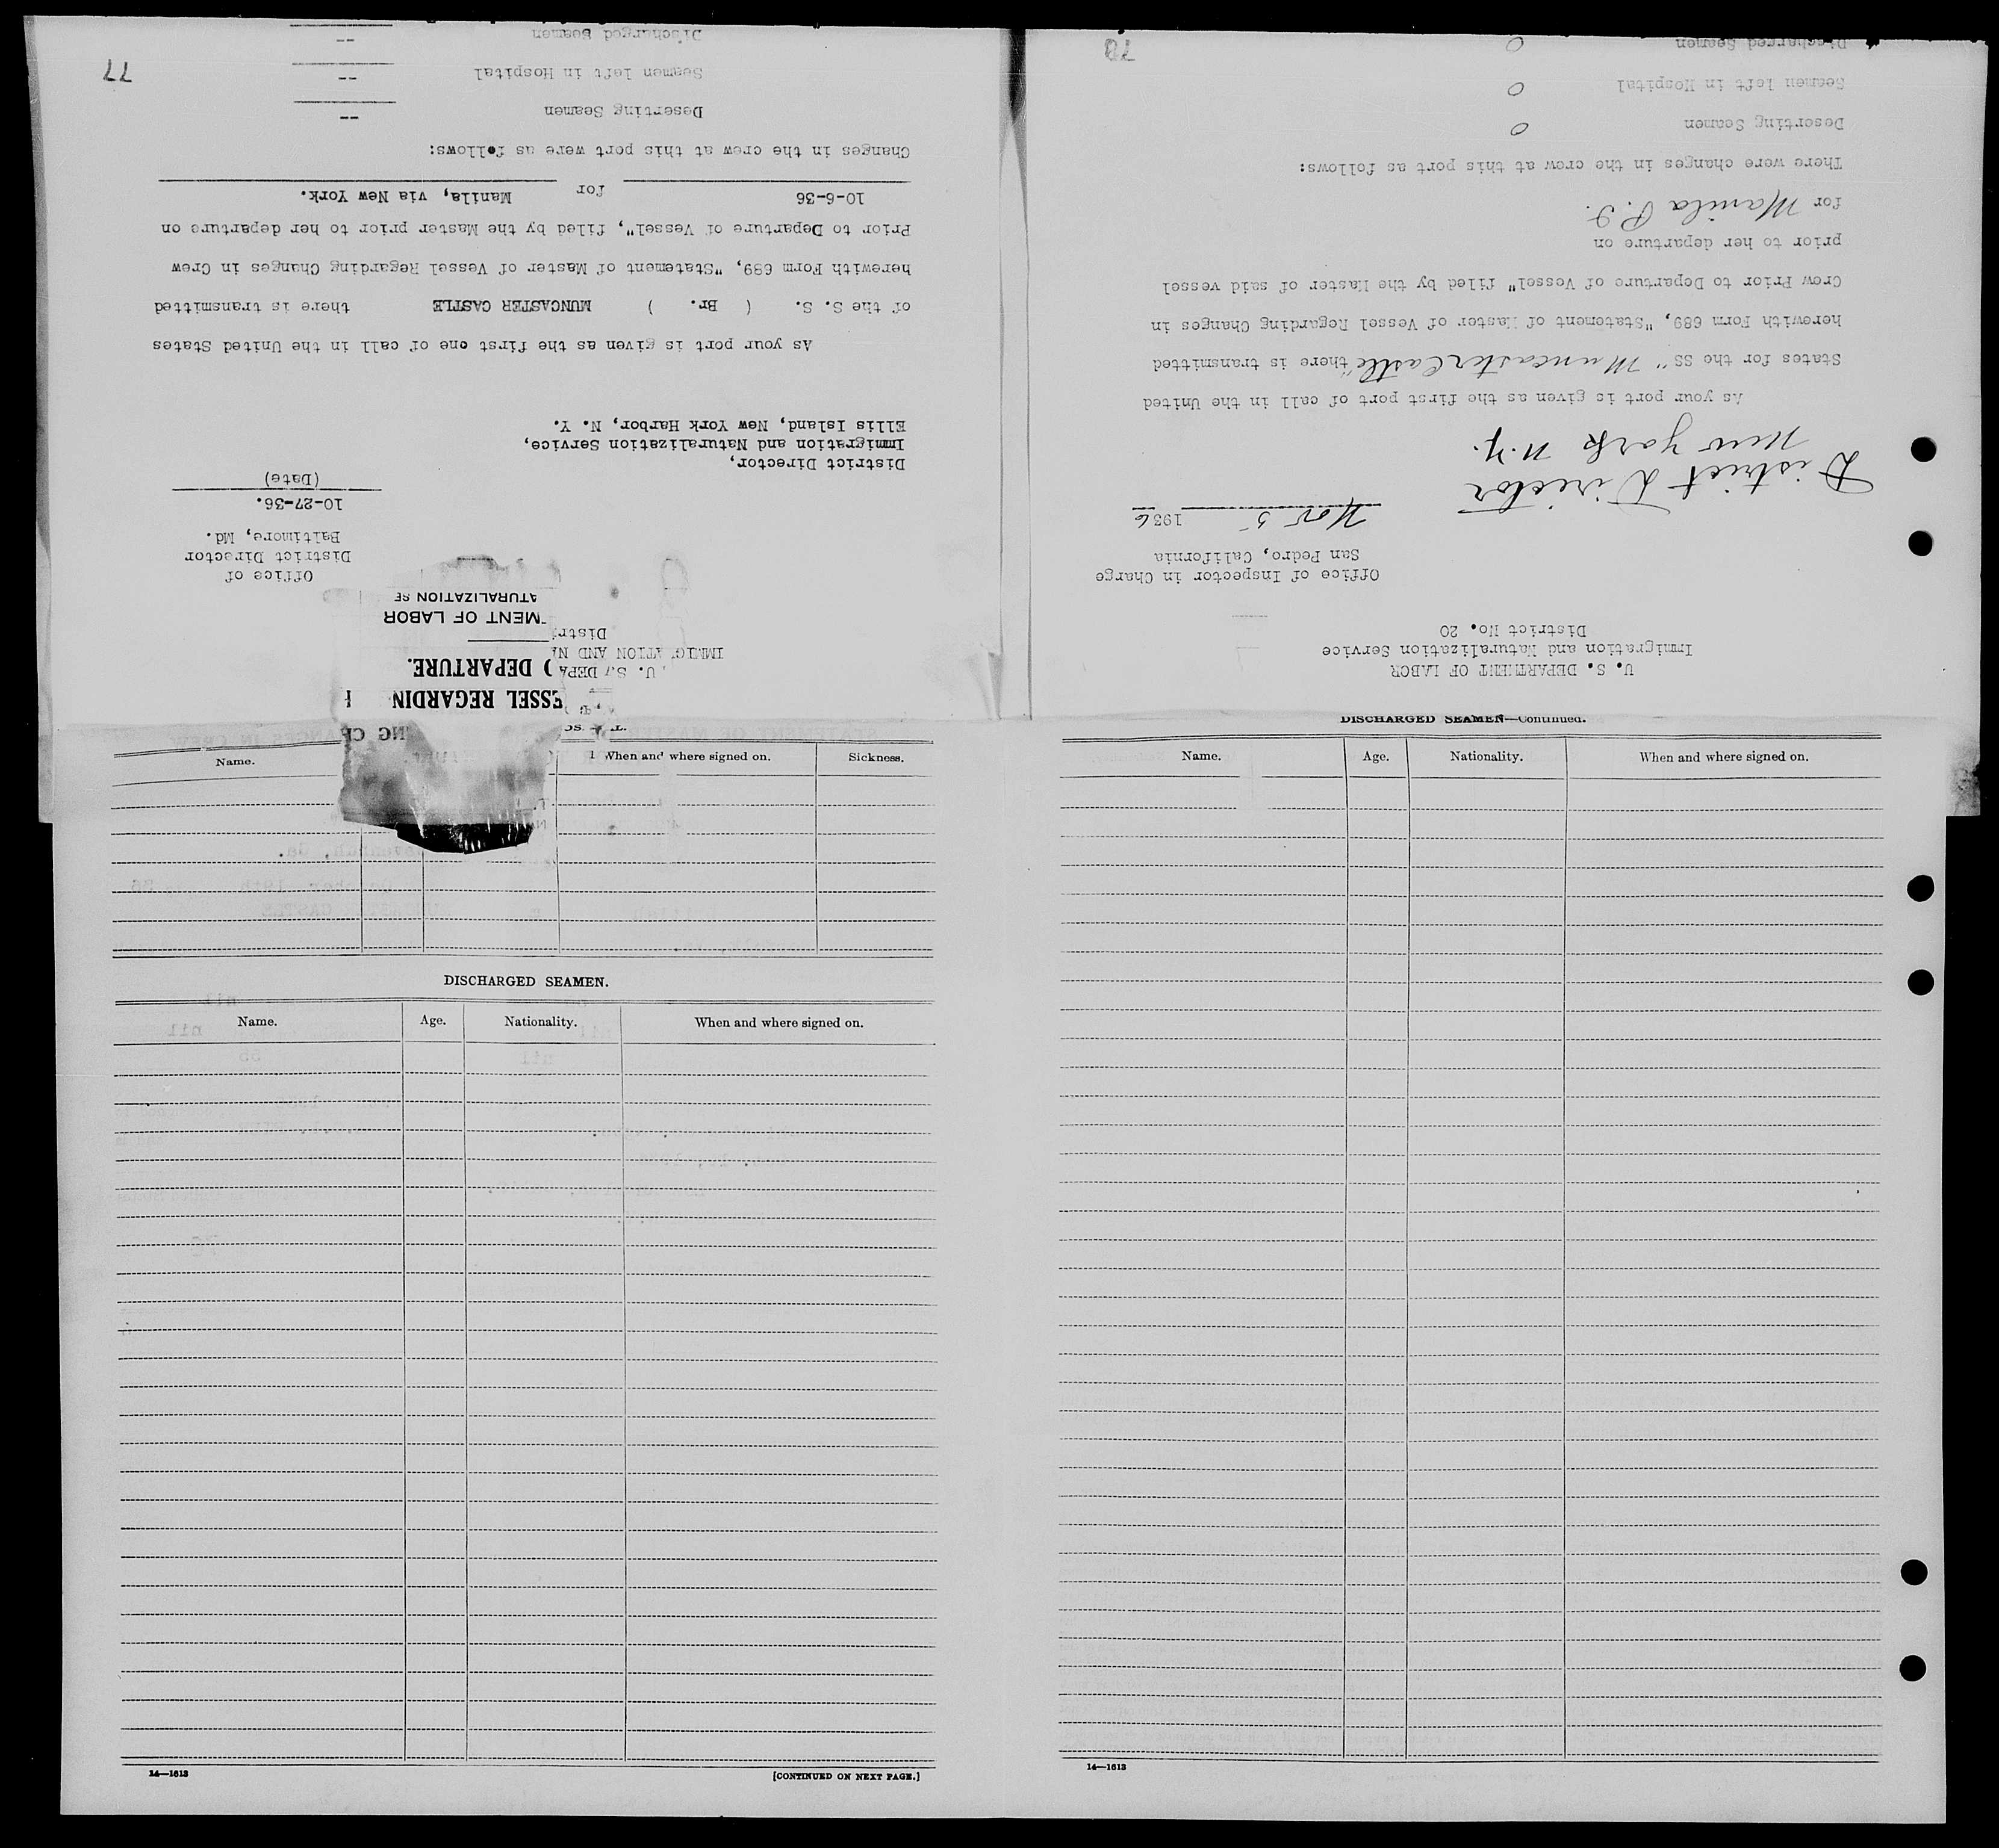 U. S. DEPA
IMMIG ATION AND NA
Distri
ESSEL REGARDIN
DEPARTURE.
MENT OF LABOR
ATURALIZATION SE
Office of
District Director
Baltimore, Md.
10-27-36.
(Date)
District Director,
Immigration and Naturalization Service,
Ellis Island, New York Harbor, N. Y.
As your port is given as the first one of call in the United States
of the S. S. ( Br. ) MUNCASTER CASTLE there is transmitted
herewith Form 689, "Statement of Master of Vessel Regarding Changes in Crew
Prior to Departure of Vessel", filed by the Master prior to her departure on
10-6-36 for Manila, via New York.
Changes in the crew at this port were as follows:
Deserting Seamen --
Seamen left in Hospital --
Discharged Seamen --
77
U. S. DEPARTMENT OF LABOR
Immigration and Naturalization Service
District No. 20
Office of Inspector in Charge
San Pedro, California
Nov 5 1936
District Director
New York N.Y.
As your port is given as the first port of call in the United
States for the SS "Muncaster Castle" there is transmitted
herewith Form 689, "Statement of Master of Vessel Regarding Changes in
Crew Prior to Departure of Vessel" filed by the Master of said vessel
prior to her departure on
for Manila P.I.
There were changes in the crew at this port as follows:
Deserting Seamen 0
Seamen left in Hospital 0
Discharged Seamen 0
78
Name. When and where signed on. Sickness.
DISCHARGED SEAMEN.
Name. Age. Nationality. When and where signed on.
14—1613 [CONTINUED ON NEXT PAGE.]
DISCHARGED SEAMEN—Continued.
Name. Age. Nationality. When and where signed on.
14—1613